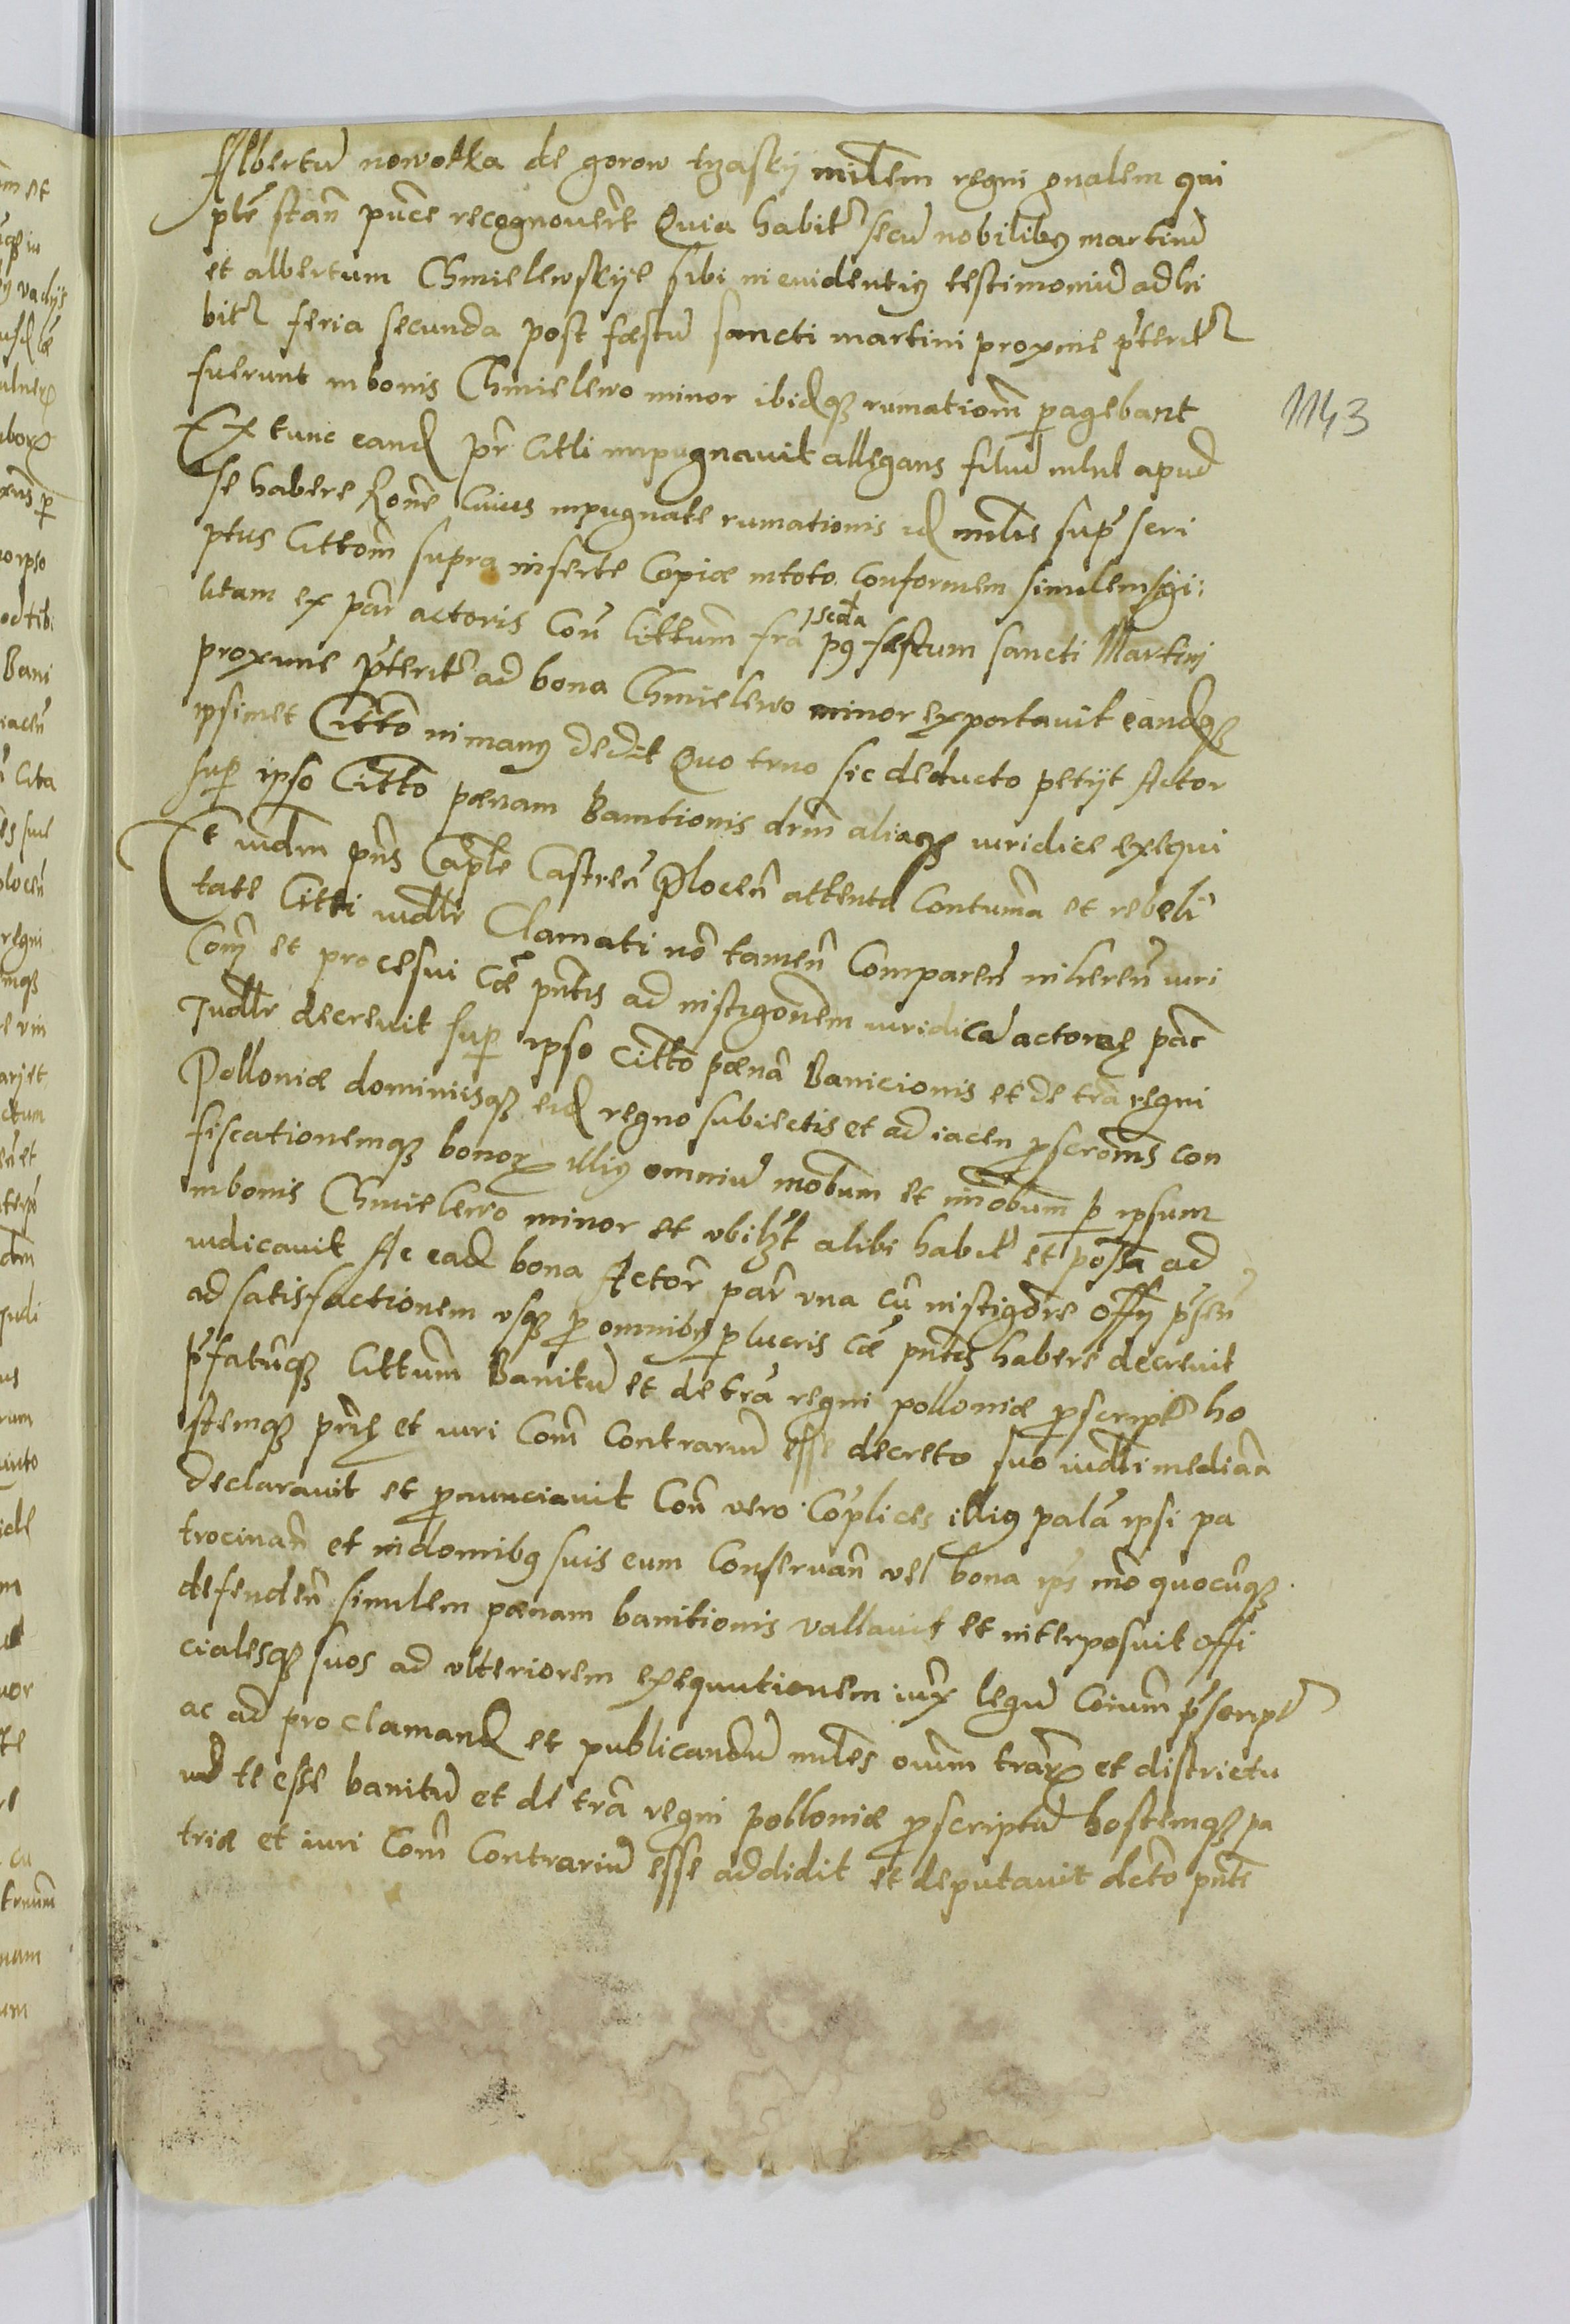 Albertũ nowotka de gorow trzaskÿ militem regni gnalem qui
pñte stañ pucẽ recognouerẽ Quia habitˢ secũ nobilibꝰ martinũ
et albertum Chmielewskije sibi in euidentiꝰ testimoniũ adhi
bitˢ feria secunda post fæstũ sancti martini proxime pˢteritˢ
fuerunt in bonis Chmielewo minor ibidqꝫ rumatiom̃ pagebant
Ex tunc eand pr̃ Citti impugnauit allegans filiũ nihil apud
se habere Rone Cuius inpugnate rumationis id milis supˢ scri
ptus Cittom̃ supra inserte Copiæ in toto Conformem similem sigi:
litam ex par̃ actoris Coñ Cittum fria scda pꝰ fæstum sancti Martinj
proxime pˢteritˢ ad bona Chmielewo minor exportauit eandqꝫ
ipsimet Citto in manꝰ dedit Quo truo sic deducto petijt Actor
sup ipso Citto pœnam Banitionis drm̃ aliaqꝫ iuridice exequi
Et iudm pñs Capłe Castreñ Ploceñ attenta Contuma et rebeli
tate Citti iudłr Clamati nõ tameñ Compareñ inhereñ iuri
Com̃ et processui cæ pñtis ad instigoñem iuridicã actoreę par̃
Judłr decreuit sup ipso citto pœnã Banicionis et de trã regni
Polloniæ dominiisqꝫ eid regno subiectis et adiaceñ pscromis con
fiscationemqꝫ bonoꝝ illiꝰ omniũ mobum et imobum p ipsum
in bonis Chmielewo minor et vbilꝫt alibi habitˢ et possa ad
iudicauit Ac ead bona Actoꝛ par̃ vna cũ instigore offy pˢseñ
ad satisfactionem vsqꝫ p omnibꝰ plucris cæ pñtis habere decreuit
pˢfatũqꝫ Cittum Banitũ et de trã regni polloniæ pscriptˢ ho
stemqꝫ pr̃ię et iuri Com̃ Contrariũ esse decreto suo iudłi mediañ
declarauit et pnunciauit Coñ vero Cõplices illiꝰ palã ipsi pa
trocinañ et in domibꝰ suis eum Conseruañ vel bona ipˢ mõ quocũqꝫ
defendeñ similem pœnam banitionis vallauit et interposuit offi
cialesqꝫ suos ad vlteriorem exequutionem iux̃ legũ Coium pˢscriptˢ
ac ad proclamand et publicandũ milẽs ouim traꝝ et districtu
ud te esse banitũ et de trã regni polloniæ pscriptũ hostemqꝫ pa
triæ et iuri Com̃ Contrariũ esse addidit et deputauit dcto pñte
1143